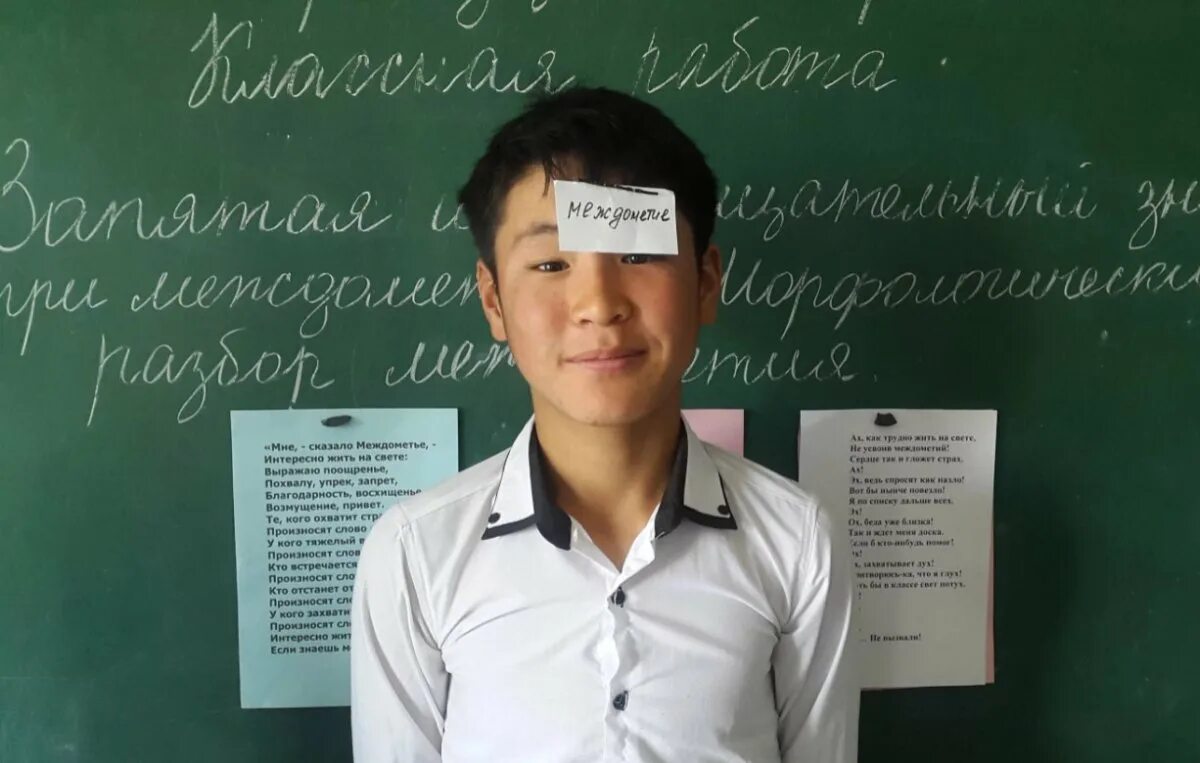 Классная работа.
Запятая и щательный зн
при междомет Морфологический
разбор меж етия.
междометие
«Мне, - сказало Междометье, -
Интересно жить на свете:
Выражаю поощренье,
Похвалу, упрек, запрет,
Благодарность, восхищенье
Возмущение, привет.
Те, кого охватит стр
Произносят слово
У кого тяжелый в
Произносят слов
Кто встречается
Произносят сло
Кто отстанет от
Произносят сло
У кого захвати
Произносят сл
Интересно жит
Если знаешь м
Ах, как трудно жить на свете,
Не усвоив междометий!
Сердце так и гложет страх,
Ах!
Эх, ведь спросят как назло!
Вот бы нынче повезло!
Я по списку дальше всех,
Эх!
Ох, беда уже близка!
Так и ждет меня доска.
Если б кто-нибудь помог!
х!
х, захватывает дух!
ритворюсь-ка, что я глух!
ть бы в классе свет потух.
!
... Не вызвали!